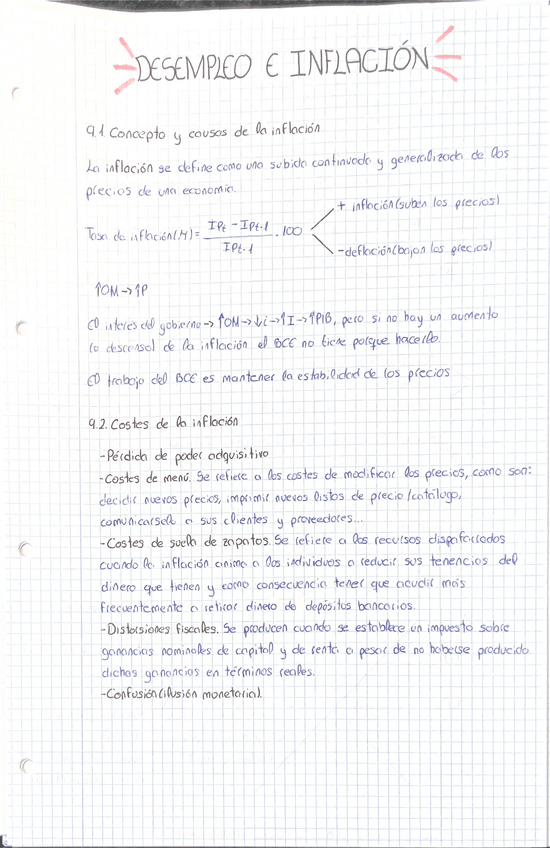 DESEMPLEO E INFLACIÓN
9.1 Concepto y causas de la inflación
La inflación se define como una subida continuada y generalizada de los
precios de una economía.
Tasa de inflación(π)= (IPt - IPt-1 / IPt-1) · 100
+ inflación(suben los precios)
-deflación(bajan los precios)
↑OM→↑P
El interés del gobierno→↑OM→↓i→↑I→↑PIB, pero si no hay un aumento
(o descenso) de la inflación el BCE no tiene porque hacerlo.
El trabajo del BCE es mantener la estabilidad de los precios
9.2. Costes de la inflación
-Pérdida de poder adquisitivo
-Costes de menú. Se refiere a los costes de modificar los precios, como son:
decidir nuevos precios, imprimir nuevas listas de precio/catálogo,
comunicárselo a sus clientes y proveedores...
-Costes de suela de zapatos. Se refiere a los recursos
cuando la inflación anima a los individuos a reducir sus tenencias del
dinero que tienen y como consecuencia tener que acudir más
frecuentemente a retirar dinero de depósitos bancarios.
-Distorsiones fiscales. Se producen cuando se establece un impuesto sobre
ganancias nominales de capital y de renta a pesar de no haberse producido
dichas ganancias en términos reales.
-Confusión(ilusión monetaria).